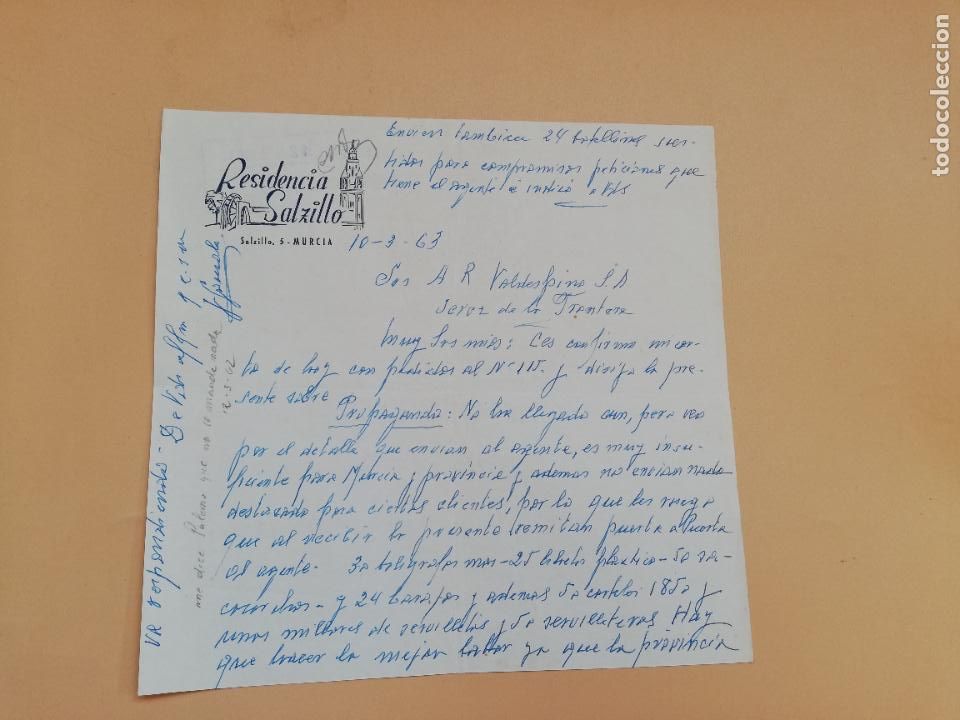 Envien tambien 24 botellines sur-
tidos para compromisos peticiones que
tiene el agente e indicó a Vds
Residencia
Salzillo
Salzillo, 5 - MURCIA
10-3-63
Sres A R Valdespino S.A
Jerez de la Frontera
Muy Sres mios: Les confirmo mi car-
ta de hoy con pedidos al Nº 115. y dirijo la pre-
sente sobre
Propaganda: No ha llegado aun, pero veo
por el detalle que envian al agente, es muy insu-
ficiente para Murcia y provincia y ademas no envian nada
destacado para ciertos clientes, por lo que les ruego
que al recibir la presente remitan puerta a Puerta
al agente. 30 boligrafos mas - 25 plastico - 50 sa-
cacorchos - y 24 barajas y ademas 50 carteles 1850 y
unos millares de servilletas y 50 servilleteros Hay
que hacer la mejor labor ya que la provincia
va respondiendo - De Vds affmo q e s m
me dice Palomo que no le mande nada
12-3-62
todocoleccion
todocoleccion